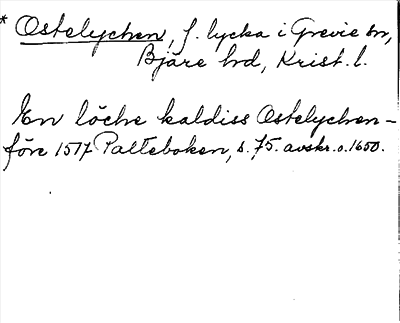 * Ostelychen, f. lycka i Grevie sn,
Bjäre hd, Krist. l.
En löche kaldiss Ostelychen -
före 1517 Palteboken, s. 75. avskr. o. 1650.